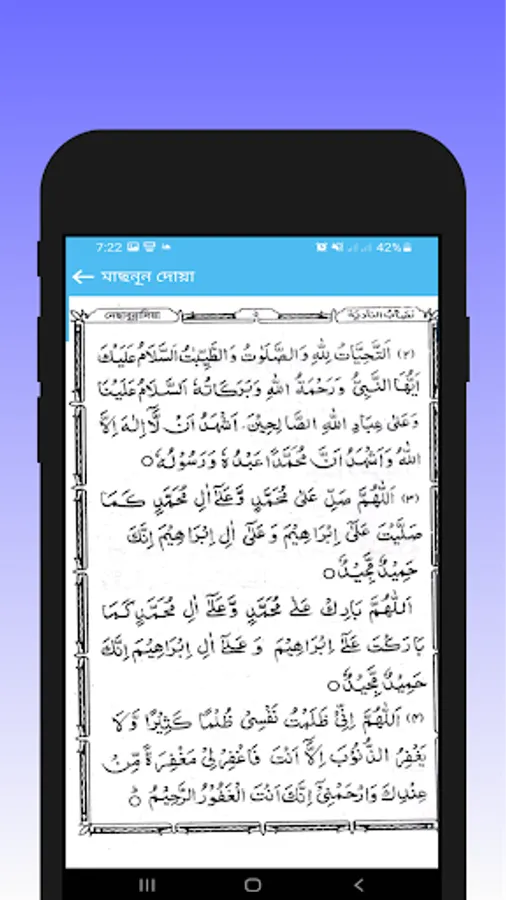 7:22 42%
মাছনূন দোয়া
(٢) اَلتَّحِيَّاتُ لِلّٰهِ وَالصَّلَوٰتُ وَالطَّيِّبٰتُ اَلسَّلَامُ عَلَيْكَ
اَيُّهَا النَّبِيُّ وَرَحْمَةُ اللّٰهِ وَبَرَكَاتُهٗ اَلسَّلَامُ عَلَيْنَا
وَعَلٰى عِبَادِ اللّٰهِ الصَّالِحِيْنَ. اَشْهَدُ اَنْ لَّآ اِلٰهَ اِلَّا
اللّٰهُ وَاَشْهَدُ اَنَّ مُحَمَّدًا عَبْدُهٗ وَرَسُوْلُهٗ○
(٣) اَللّٰهُمَّ صَلِّ عَلٰى مُحَمَّدٍ وَّعَلٰٓى اٰلِ مُحَمَّدٍ كَمَا
صَلَّيْتَ عَلٰٓى اِبْرَاهِيْمَ وَعَلٰٓى اٰلِ اِبْرَاهِيْمَ اِنَّكَ
حَمِيْدٌ مَّجِيْدٌ○
اَللّٰهُمَّ بَارِكْ عَلٰى مُحَمَّدٍ وَّعَلٰٓى اٰلِ مُحَمَّدٍ كَمَا
بَارَكْتَ عَلٰٓى اِبْرَاهِيْمَ وَعَلٰٓى اٰلِ اِبْرَاهِيْمَ اِنَّكَ
حَمِيْدٌ مَّجِيْدٌ○
(٤) اَللّٰهُمَّ اِنِّيْ ظَلَمْتُ نَفْسِيْ ظُلْمًا كَثِيْرًا وَّلَا
يَغْفِرُ الذُّنُوْبَ اِلَّآ اَنْتَ فَاغْفِرْ لِيْ مَغْفِرَةً مِّنْ
عِنْدِكَ وَارْحَمْنِيْٓ اِنَّكَ اَنْتَ الْغَفُوْرُ الرَّحِيْمُ○